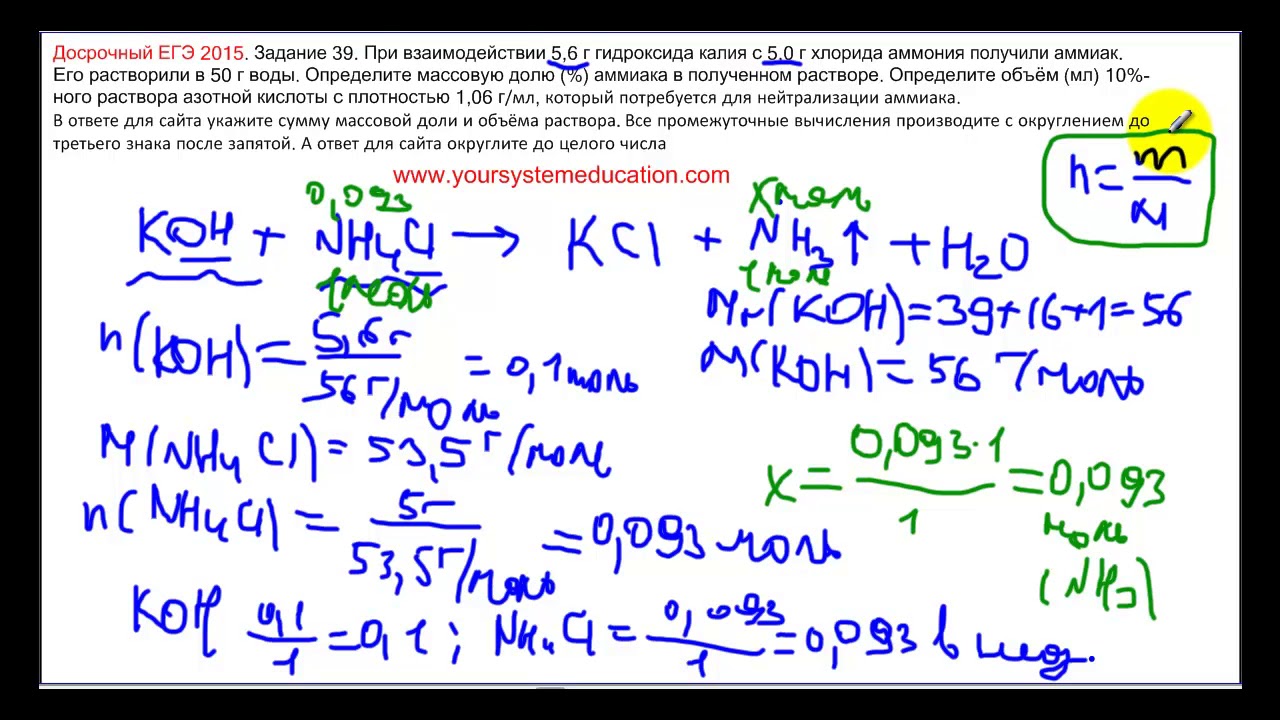 Досрочный ЕГЭ 2015. Задание 39. При взаимодействии 5,6 г гидроксида калия с 5,0 г хлорида аммония получили аммиак.
Его растворили в 50 г воды. Определите массовую долю (%) аммиака в полученном растворе. Определите объём (мл) 10%-
ного раствора азотной кислоты с плотностью 1,06 г/мл, который потребуется для нейтрализации аммиака.
В ответе для сайта укажите сумму массовой доли и объёма раствора. Все промежуточные вычисления производите с округлением до
третьего знака после запятой. А ответ для сайта округлите до целого числа
www.yoursystemeducation.com
n = m/M
0,093 x моль
KOH + NH4Cl → KCl + NH3↑ + H2O
1моль 1моль
Mr(KOH) = 39+16+1=56
n(KOH) = 5,6г/56г/моль = 0,1моль
M(KOH) = 56 г/моль
M(NH4Cl) = 53,5г/моль
x = 0,093·1/1 = 0,093 моль (NH3)
n(NH4Cl) = 5г/53,5г/моль = 0,093 моль
KOH 0,1/1 = 0,1; NH4Cl = 0,093/1 = 0,093 в нед.